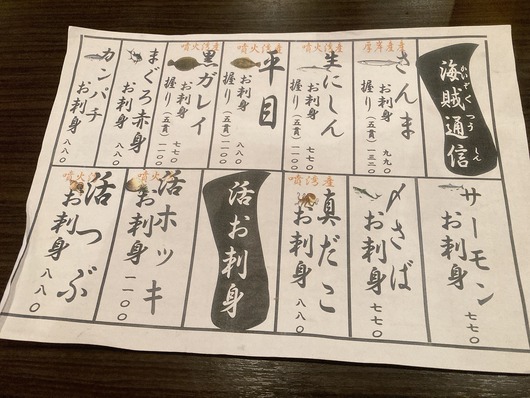 海賊通信
かいぞくつうしん
厚岸産
さんま
お刺身 九九〇
握り(五貫)一三二〇
噴火湾産
生にしん
お刺身 七七〇
握り(五貫)一一〇〇
噴火湾産
平目
お刺身 八八〇
握り(五貫)
噴火湾産
黒ガレイ
お刺身 七七〇
握り(五貫)一一〇〇
まぐろ赤身
お刺身 八八〇
カンパチ
お刺身 八八〇
サーモン
お刺身 七七〇
〆さば
お刺身 七七〇
噴湾産
真だこ
お刺身 八八〇
活お刺身
活ホッキ
お刺身 一一〇〇
活つぶ
お刺身 八八〇